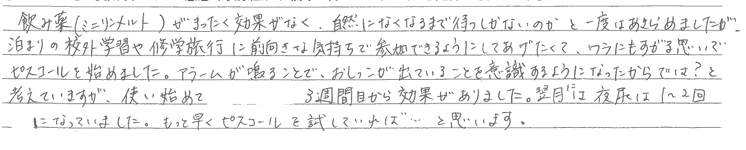 飲み薬(ミニリンメルト)がまったく効果がなく、自然になくなるまで待つしかないのかと一度はあきらめましたが、
泊まりの校外学習や修学旅行に前向きな気持ちで参加できるようにしてあげたくて、ワラにもすがる思いで
ピスコールを始めました。アラームが鳴ることで、おしっこが出ていることを意識するようになったからでは?と
考えていますが、使い始めて 3週間目から効果がありました。翌月には夜尿は1~2回
になっていました。もっと早くピスコールを試していれば…と思います。